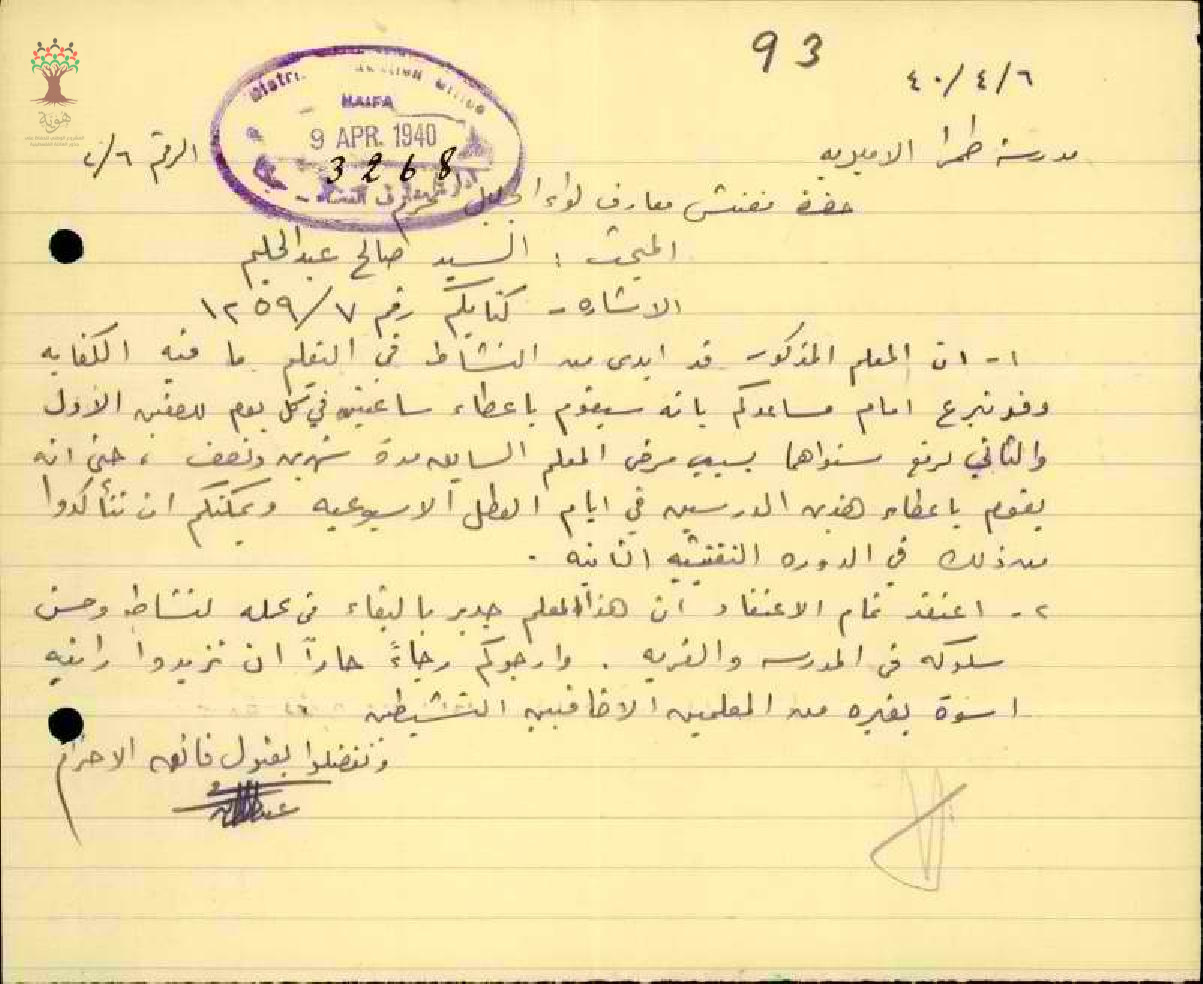 93
٤٠/٤/٦
هوية
HAIFA
9 APR. 1940
3268
مدرسة طمرا الاميريه
الرقم ٤/٦
حضرة مفتش معارف لواء الجليل المحترم
المبحث : السيد صالح عبدالحليم
الاشاره - كتابكم رقم ١٢٥٩/٧
١- ان المعلم المذكور قد ابدى من النشاط في التعليم ما فيه الكفايه
وقد تبرع امام مساعدكم بانه سيقوم باعطاء ساعتين في كل يوم للصفين الاول
والثاني لرفع مستواهما بسبب مرض المعلم السابق مدة شهرين ونصف ، حتى انه
يقوم باعطاء هذين الدرسين في ايام العطل الاسبوعيه ويمكنكم ان تتأكدوا
من ذلك في الدوره التفتيشيه الثانيه .
٢- اعتقد تمام الاعتقاد ان هذا المعلم جدير بالبقاء في عمله لنشاطه وحسن
سلوكه في المدرسه والقريه . وارجوكم رجاءً حاراً ان تزيدوا راتبه
اسوة بغيره من المعلمين الاضافيين النشيطين
وتفضلوا بقبول فائق الاحترام